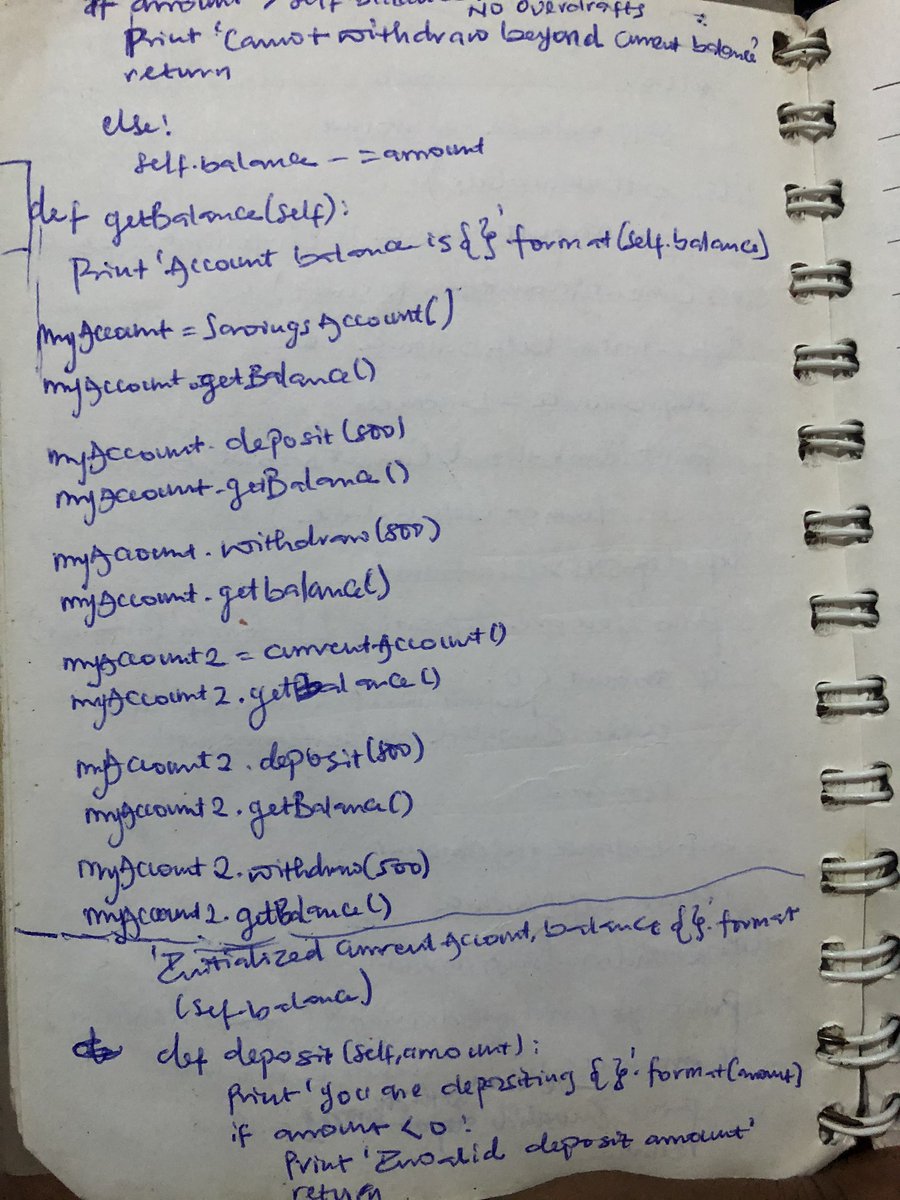 if amount > self.balance
No overdrafts
print 'Cannot withdraw beyond current balance'
return
else:
self.balance -= amount
def getBalance(self):
print 'Account balance is {}'.format(self.balance)
myAccount = SavingsAccount()
myAccount.getBalance()
myAccount.deposit(800)
myAccount.getBalance()
myAccount.withdraw(500)
myAccount.getbalance()
myAccount2 = currentAccount()
myAccount2.getbalance()
myAccount2.deposit(800)
myAccount2.getBalance()
myAccount2.withdraw(500)
myAccount2.getBalance()
'Initialized current Account, balance {}'.format
(self.balance)
def deposit(self,amount):
print 'you are depositing {}'.format(amount)
if amount < 0:
print 'Invalid deposit amount'
return